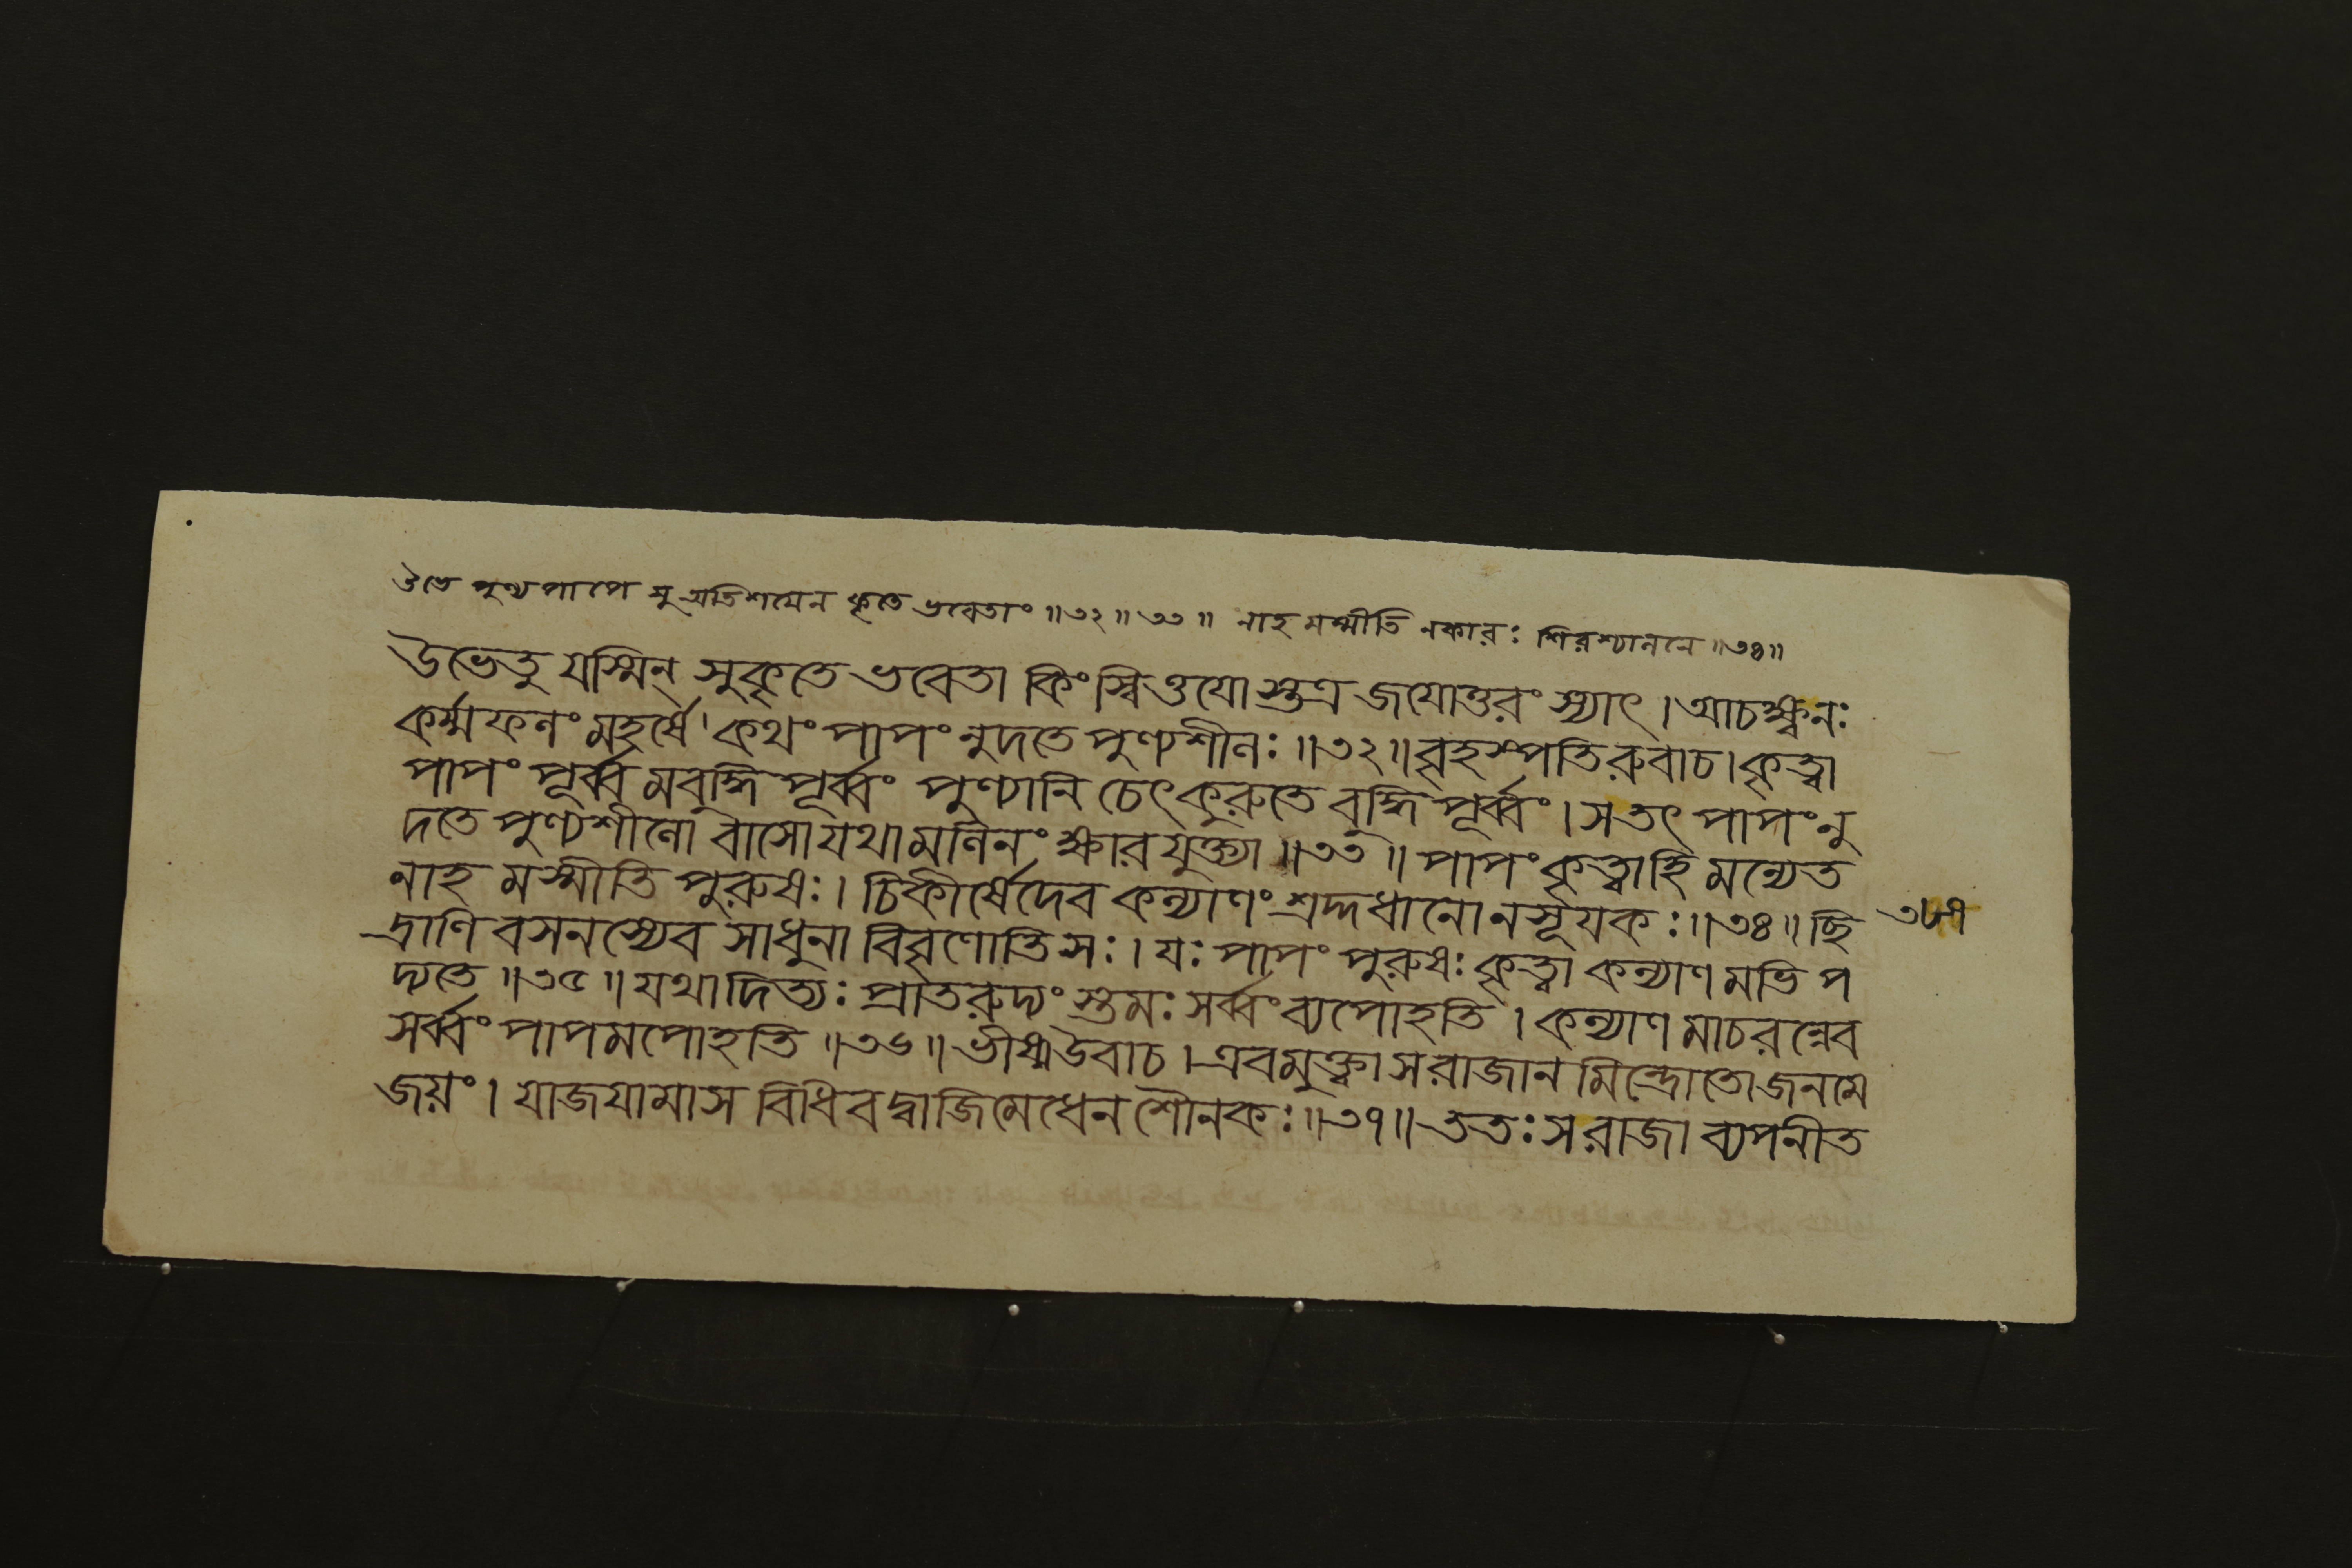 উভে পুণ্য পাপে সু অতিশয়েন কৃতে ভবেতাং ॥৩২॥ ৩৩॥ নাহ মস্মীতি নকারঃ শিরশ্চাননে ॥৩৪॥
উভেতু যস্মিন্ সুকৃতে ভবেতা কিং স্বিত্তযো স্তত্র জযোত্তরং স্যাৎ । আচক্ষ্বনঃ
কর্ম্মফলং মহর্ষে কথং পাপং নুদতে পুণ্যশীলঃ ॥৩২॥ বৃহস্পতিরুবাচ । কৃত্বা
পাপং পূর্ব্ব মবুদ্ধি পূর্ব্বং পুণ্যানি চেৎকুরুতে বুদ্ধি পূর্ব্বং । সতৎ পাপং নু
দতে পুণ্যশীলো বাসো যথা মলিনং ক্ষার যুক্ত্যা ॥৩৩॥ পাপং কৃত্বাহি মন্যেত
নাহ মস্মীতি পুরুষঃ । চিকীর্ষেদেব কল্যাণং শ্রদ্দধানো নসূযকঃ ॥৩৪॥ ছি
দ্রাণি বসনস্যেব সাধুনা বিবৃণোতি সঃ । যঃ পাপং পুরুষঃ কৃত্বা কল্যাণ মভি প
দ্যতে ॥৩৫॥ যথা দিত্যঃ প্রাতরুদ্যং স্তমঃ সর্ব্বং ব্যপোহতি । কল্যাণ মাচরন্নেব
সর্ব্বং পাপমপোহতি ॥৩৬॥ ভীষ্মউবাচ । এবমুক্ত্বা স রাজান মিন্দ্রোতো জনমে
জয়ং । যাজযামাস বিধিবদ্বাজিমেধেন শৌনকঃ ॥৩৭॥ ততঃ স রাজা ব্যপনীত